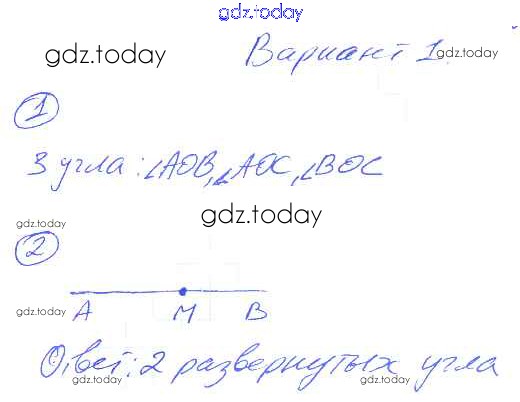 gdz.today
gdz.today Вариант 1. gdz.today
1
3 угла: ∠AOB, ∠AOC, ∠BOC
gdz.today
gdz.today gdz.today
2
gdz.today A M B gdz.today
Ответ: 2 развернутых угла
gdz.today gdz.today